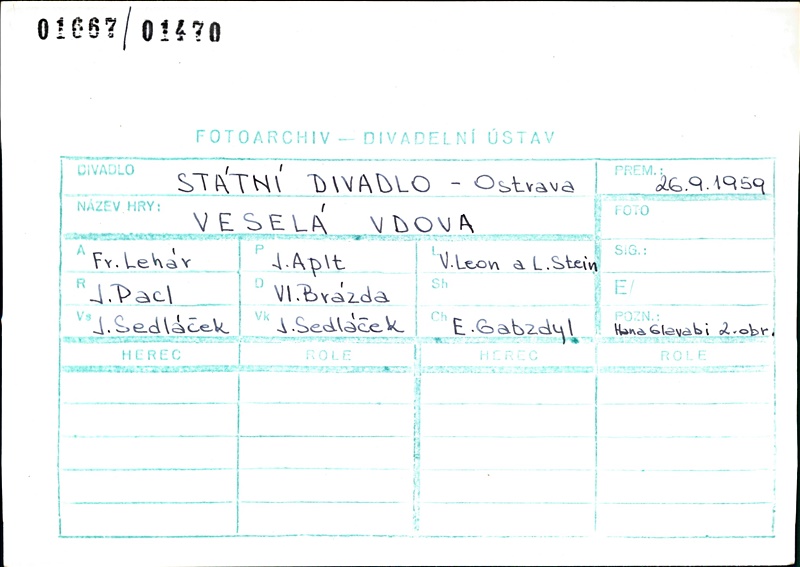 01667/01470
FOTOARCHIV — DIVADELNÍ ÚSTAV
DIVADLO STÁTNÍ DIVADLO - Ostrava PREM.: 26.9.1959
NÁZEV HRY: VESELÁ VDOVA FOTO
A Fr. Lehár P J. Aplt L V. Leon a L. Stein SIG.:
R J. Pacl D Vl. Brázda Sh E/
Vs J. Sedláček Vk J. Sedláček Ch E. Gabzdyl POZN.: Hana Glavabi 2. obr.
HEREC ROLE HEREC ROLE